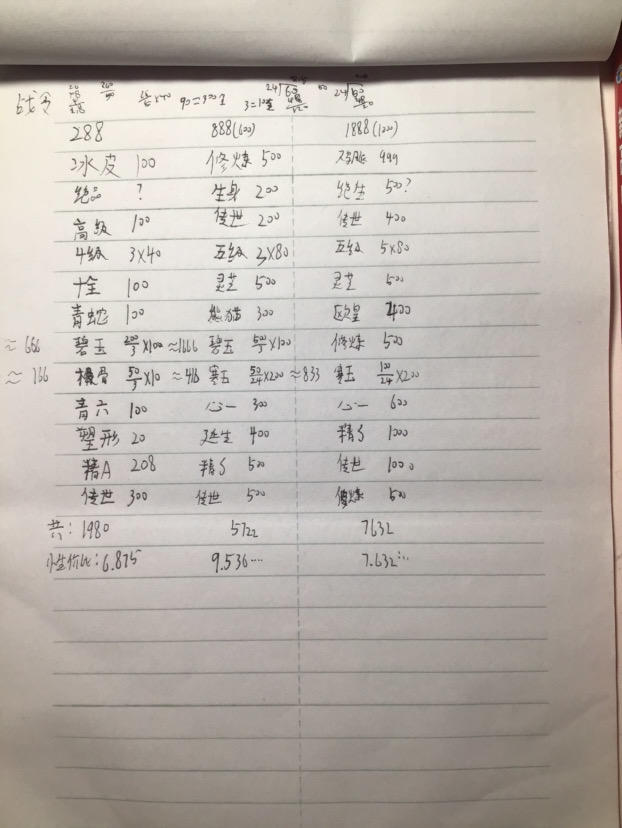 战令
90=300
288 888(600) 1888(1000)
冰皮 100 修炼 500 999
绝品 ? 生身 200 绝生 500?
高级 100 传世 200 传世 400
4级 3×40 五级 3×80 五级 5×80
十全 100 灵芝 500 灵芝 500
青蛇 100 熊猫 300 欧皇 2400
≈666 碧玉 200/3×100 ≈1666 碧玉 50/3×100 修炼 500
≈166 横骨 50/3×10 ≈416 寒玉 50/24×200 ≈833 寒玉 100/24×200
青六 100 心一 300 心一 600
塑形 20 延生 400 精S 1000
精A 208 精S 500 传世 1000
传世 300 传世 500 修炼 500
共: 1980 5722 7632
性价比: 6.875 9.536…… 7.632……